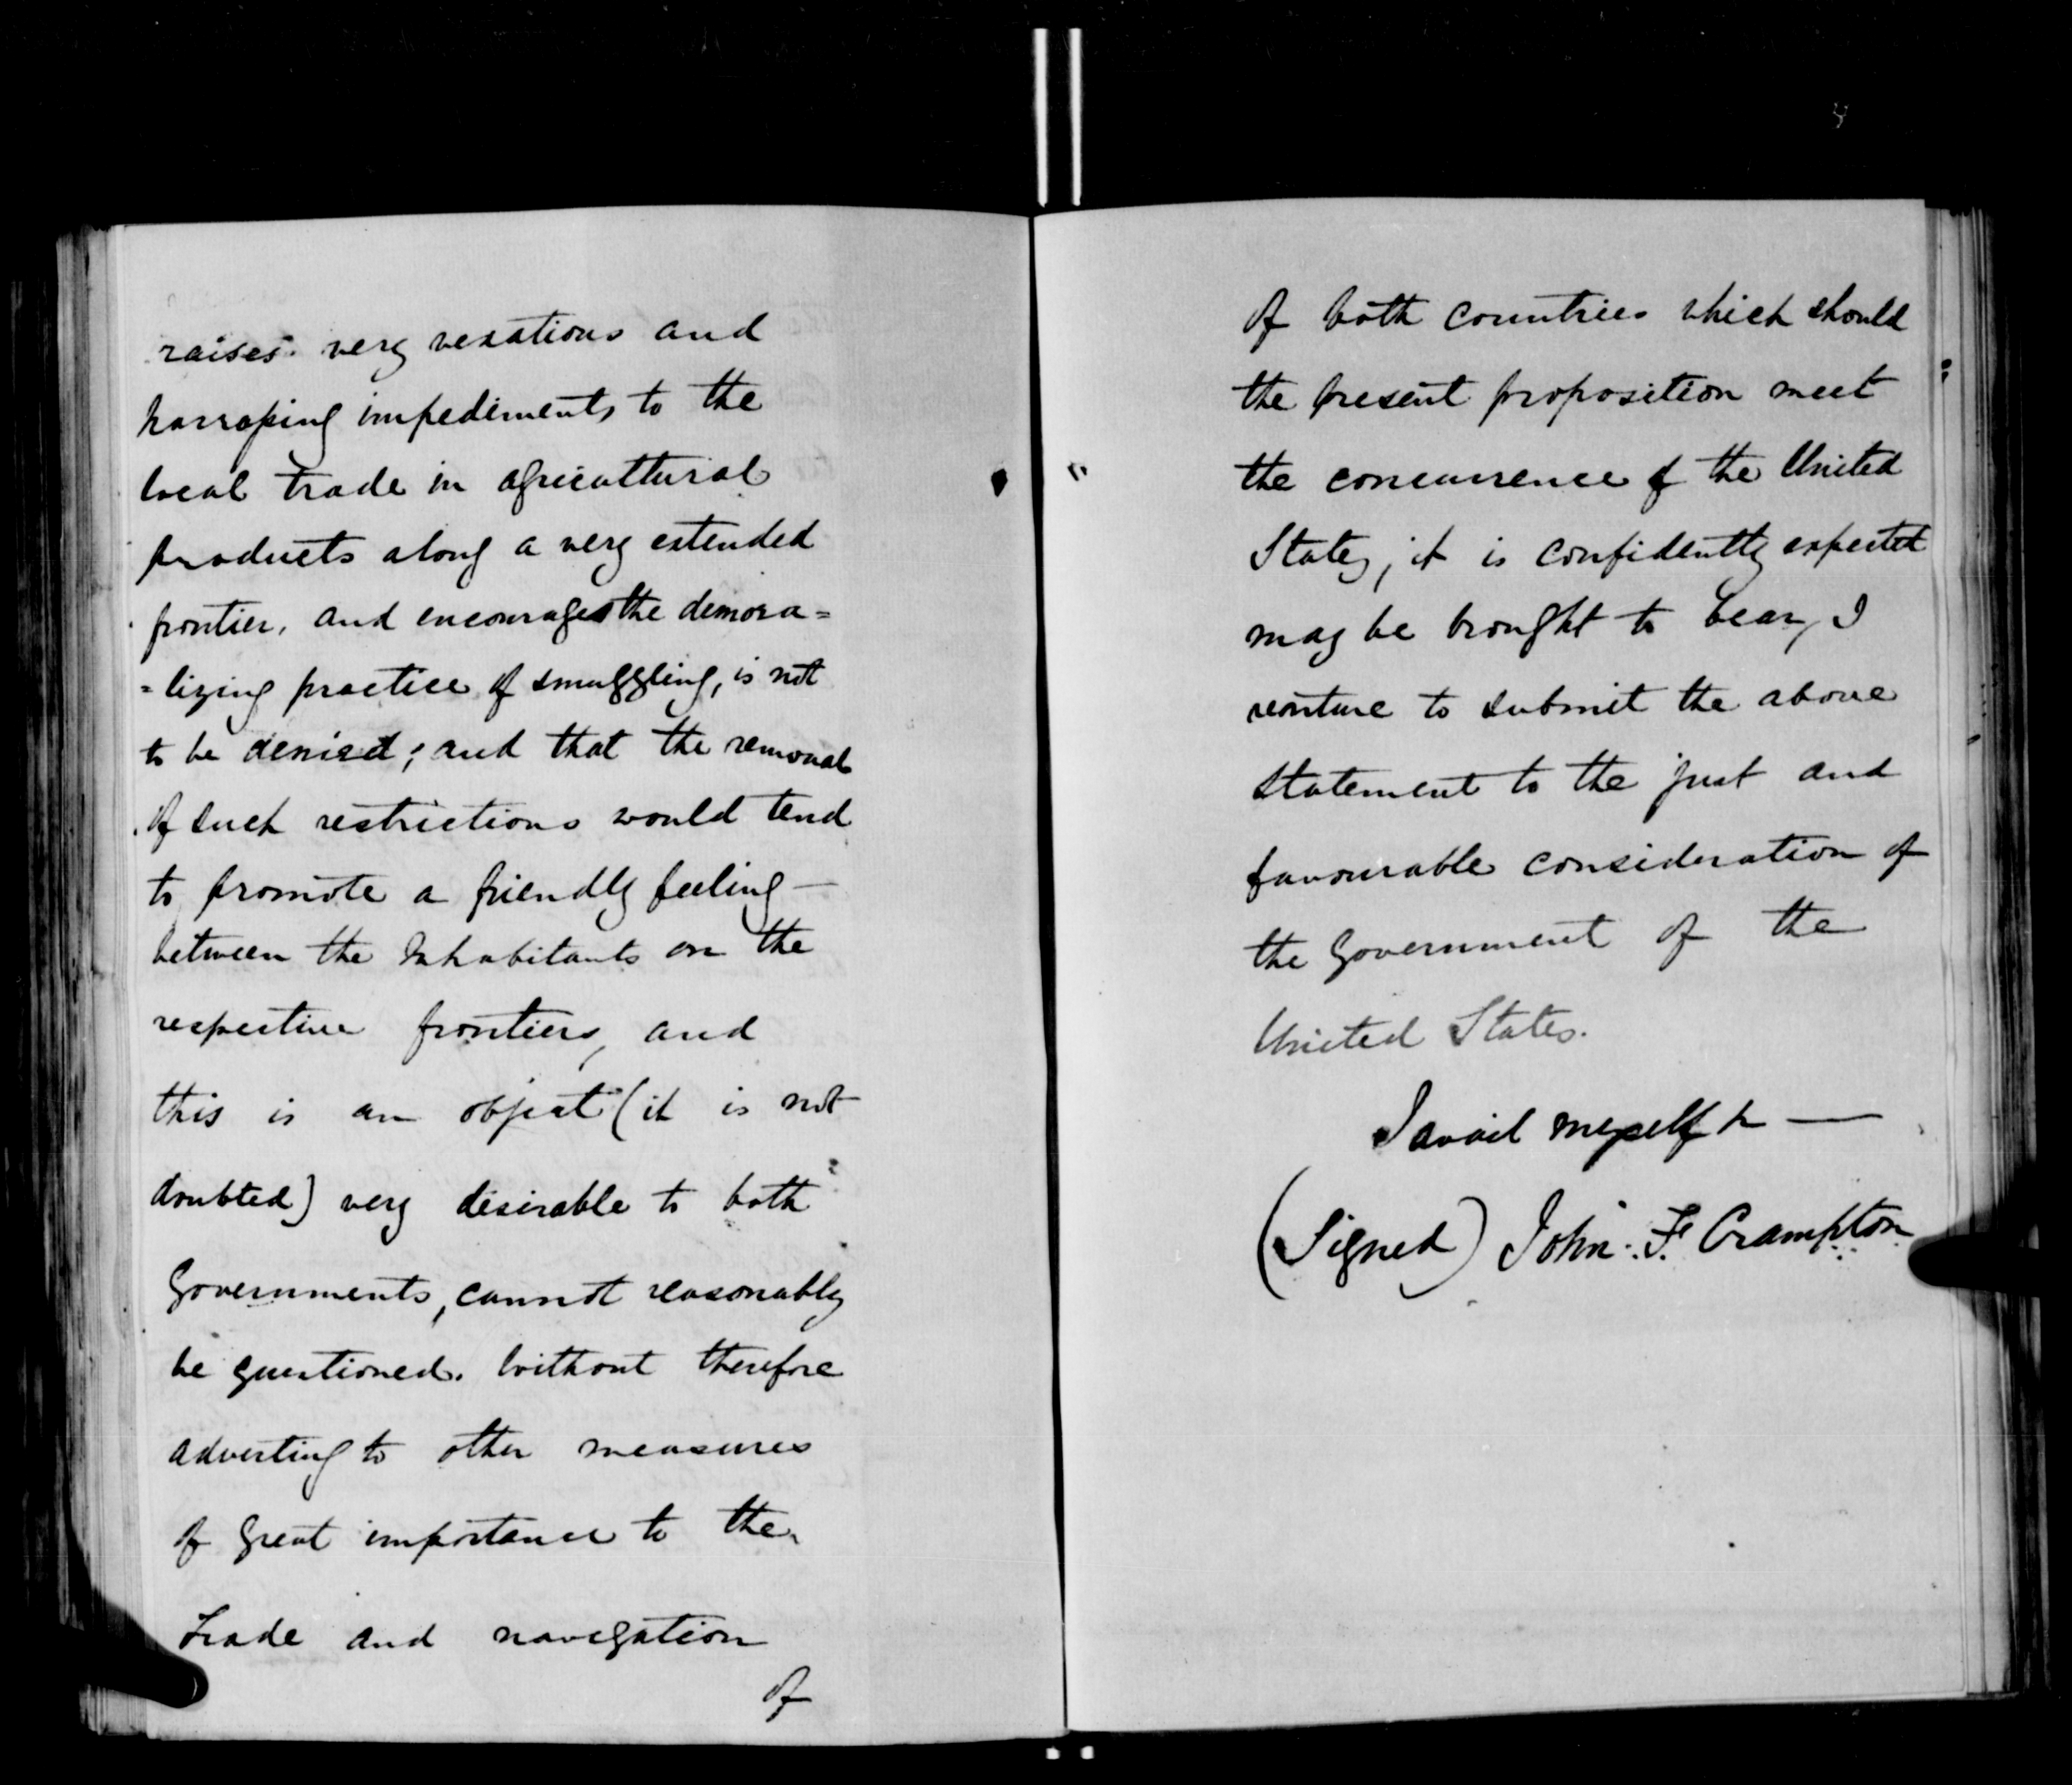 raises very vexatious and
harrassing impediments to the
local trade in agricultural
products along a very extended
frontier, and encourages the demora=
=lizing practice of smuggling, is not
to be denied; and that the removal
of such restrictions would tend
to promote a friendly feeling —
between the Inhabitants on the
respective frontiers, and
this is an object (it is not
doubted) very desirable to both
Governments, cannot reasonably
be questioned. Without therefore
adverting to other measures
of great importance to the
trade and navigation
of
of both countries which should
the present proposition meet
the concurrence of the United
States, it is confidently expected
may be brought to bear, I
venture to submit the above
statement to the just and
favourable consideration of
the Government of the
United States.
I avail myself &c —
(Signed) John. F. Crampton